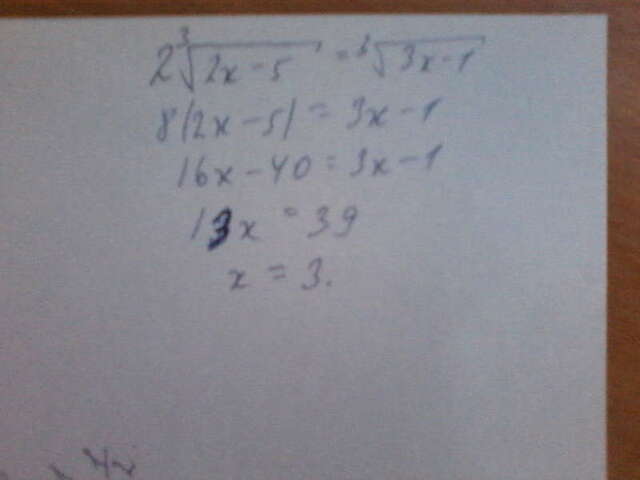 2∛(2x-5) = ∛(3x-1)
8(2x-5) = 3x-1
16x-40 = 3x-1
13x = 39
x = 3.